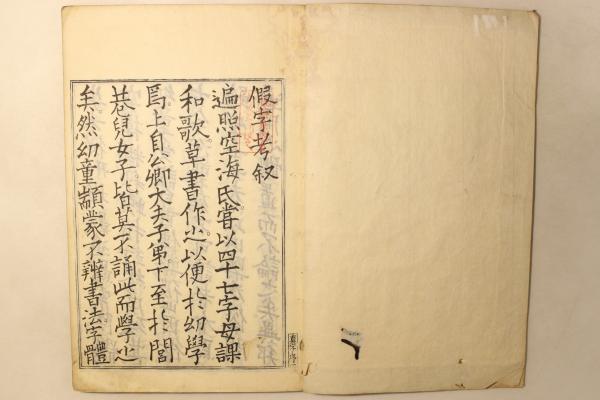 假字考叙
遍照空海氏嘗以四十七字母課
和歌草書作之以便於幼學
焉上自公卿大夫子弟下至於閭
巷兒女子皆莫不誦此而學之
矣然幼童顓蒙不辨書法字體